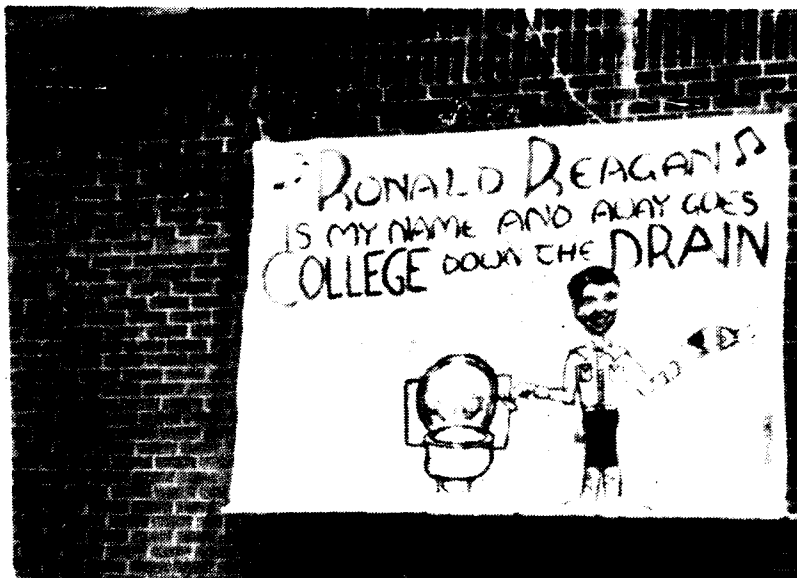 RONALD REAGAN
IS MY NAME AND AWAY GOES
COLLEGE DOWN THE DRAIN